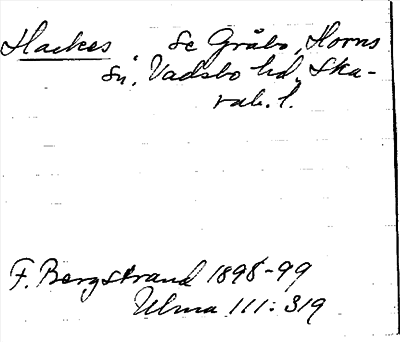 Hackes Se Gråbo, Horns
sn, Vadsbo hd, Ska-
rab. l.
F. Bergstrand 1898-99
Ulma 111:319